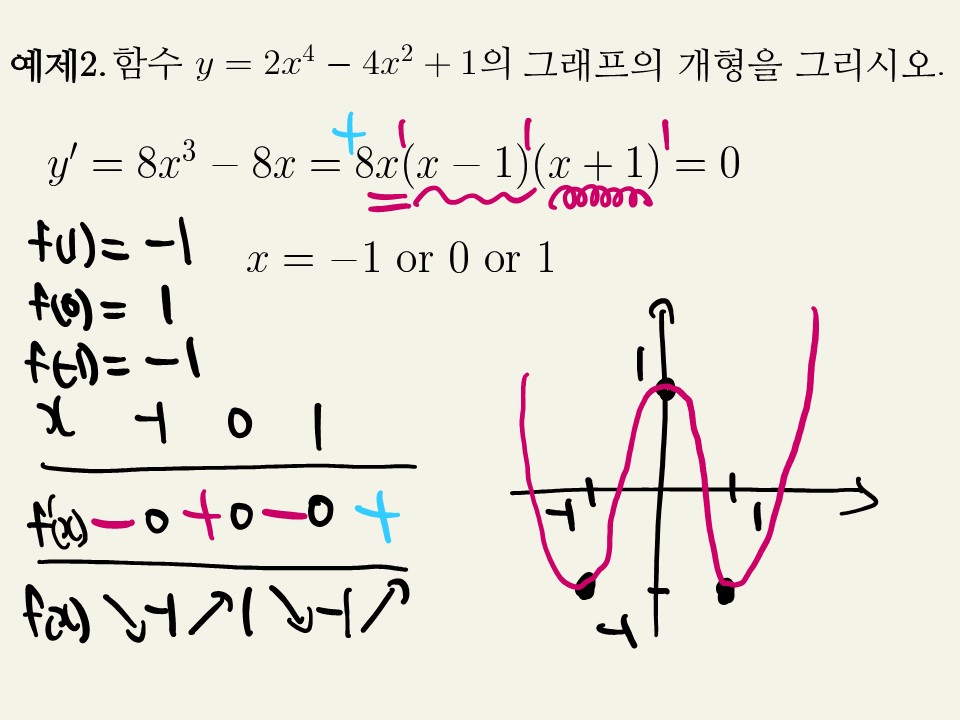 예제2. 함수 y = 2x⁴ − 4x² + 1의 그래프의 개형을 그리시오.
+ 1 1 1
y′ = 8x³ − 8x = 8x(x − 1)(x + 1) = 0
f(1) = −1
x = −1 or 0 or 1
f(0) = 1
f(-1) = −1
x -1 0 1
f'(x) − 0 + 0 − 0 +
f(x) ↘ -1 ↗ 1 ↘ -1 ↗
1
-1 1
-1